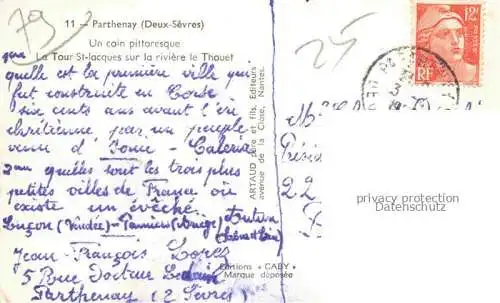 79
11 — Parthenay (Deux-Sèvres)
Un coin pittoresque
La Tour St-Jacques sur la rivière le Thouet
1em quelle est la première ville qui
fut construite en Corse
six cents ans avant l'ère
chrétienne par un peuple
venu d'Ionie - Caleria
2em quelles sont les trois plus
petites villes de France où
existe un évêché
Luçon (Vendée) - Pamiers (Ariège)
Jean-François Lores
5 Rue Docteur
Parthenay (2 Sèvres)
ARTAUD Père et fils, Éditeurs
avenue de la Close, Nantes.
Éditions "GABY"
Marque déposée
25
12F
RF
Présid
22
privacy protection
Datenschutz